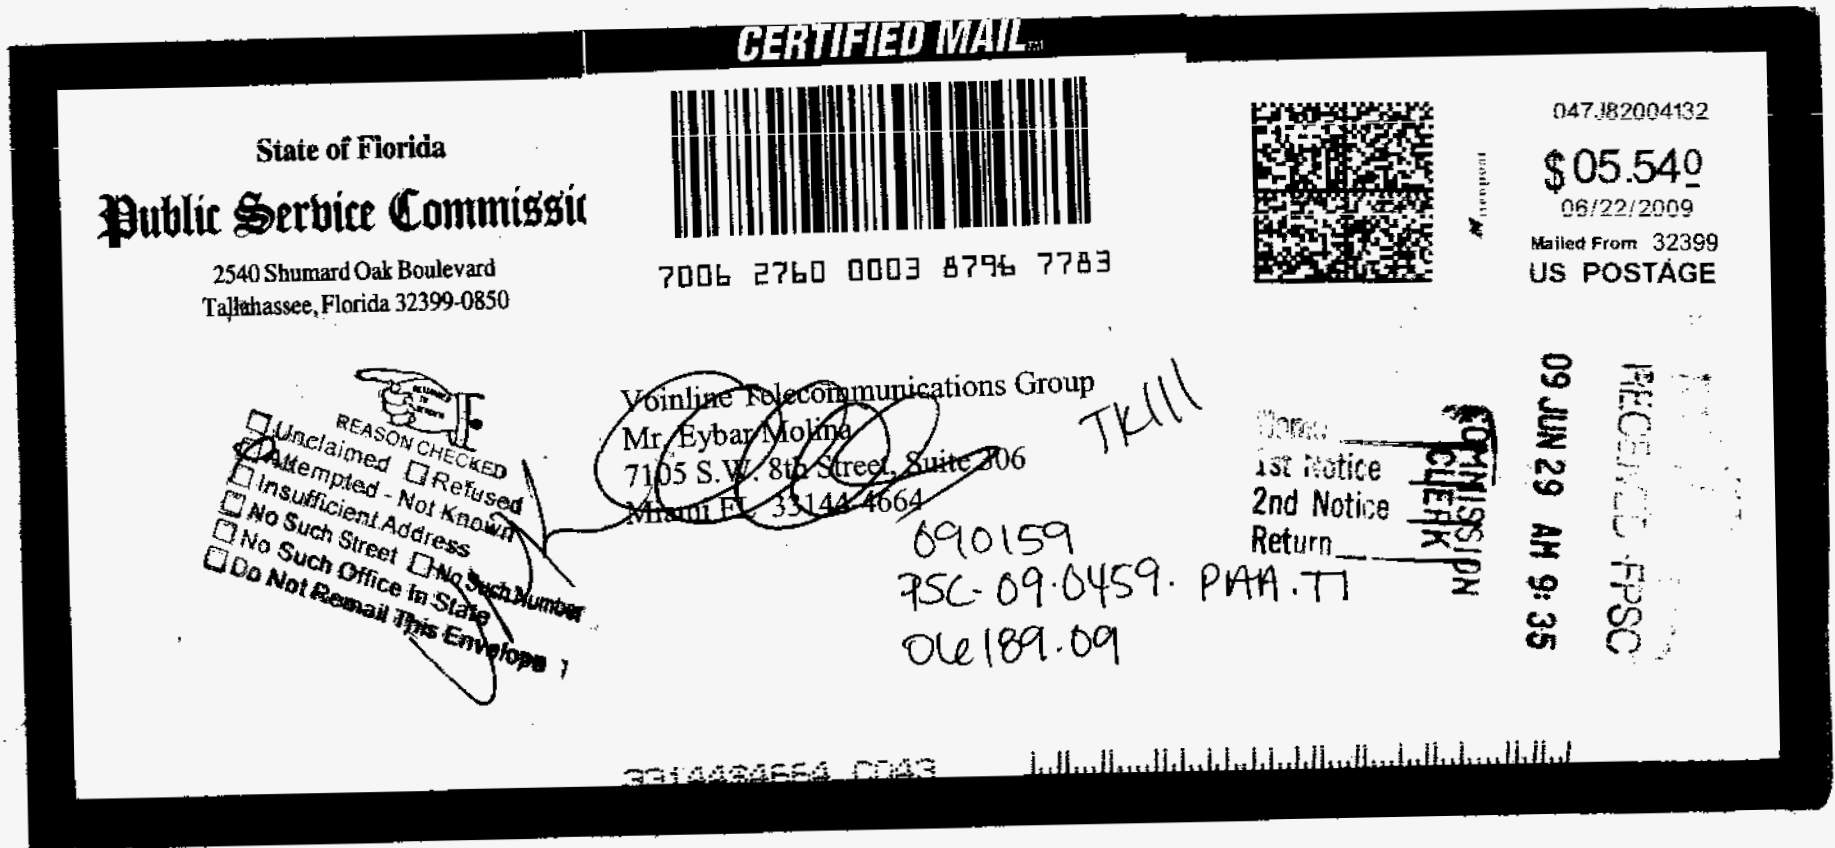 CERTIFIED MAIL
State of Florida
Public Service Commissic
2540 Shumard Oak Boulevard
Tallahassee, Florida 32399-0850
7006 2760 0003 8796 7783
047J82004132
$05.540
06/22/2009
Mailed From 32399
US POSTAGE
neopost
RETURNED TO SENDER
REASON CHECKED
Unclaimed Refused
Attempted - Not Known
Insufficient Address
No Such Street No Such Number
No Such Office in State
Do Not Remail This Envelope
Voinline Telecommunications Group
Mr. Eybar Molina
7105 S.W. 8th Street, Suite 306
Miami FL 33144-4664
090159
PSC-09-0459-PAA.TI
189.09
Name
1st Notice
2nd Notice
Return
COMMISSION
CLERK
09 JUN 29 AM 9:35
RECEIVED-FPSC
3314484664 C043